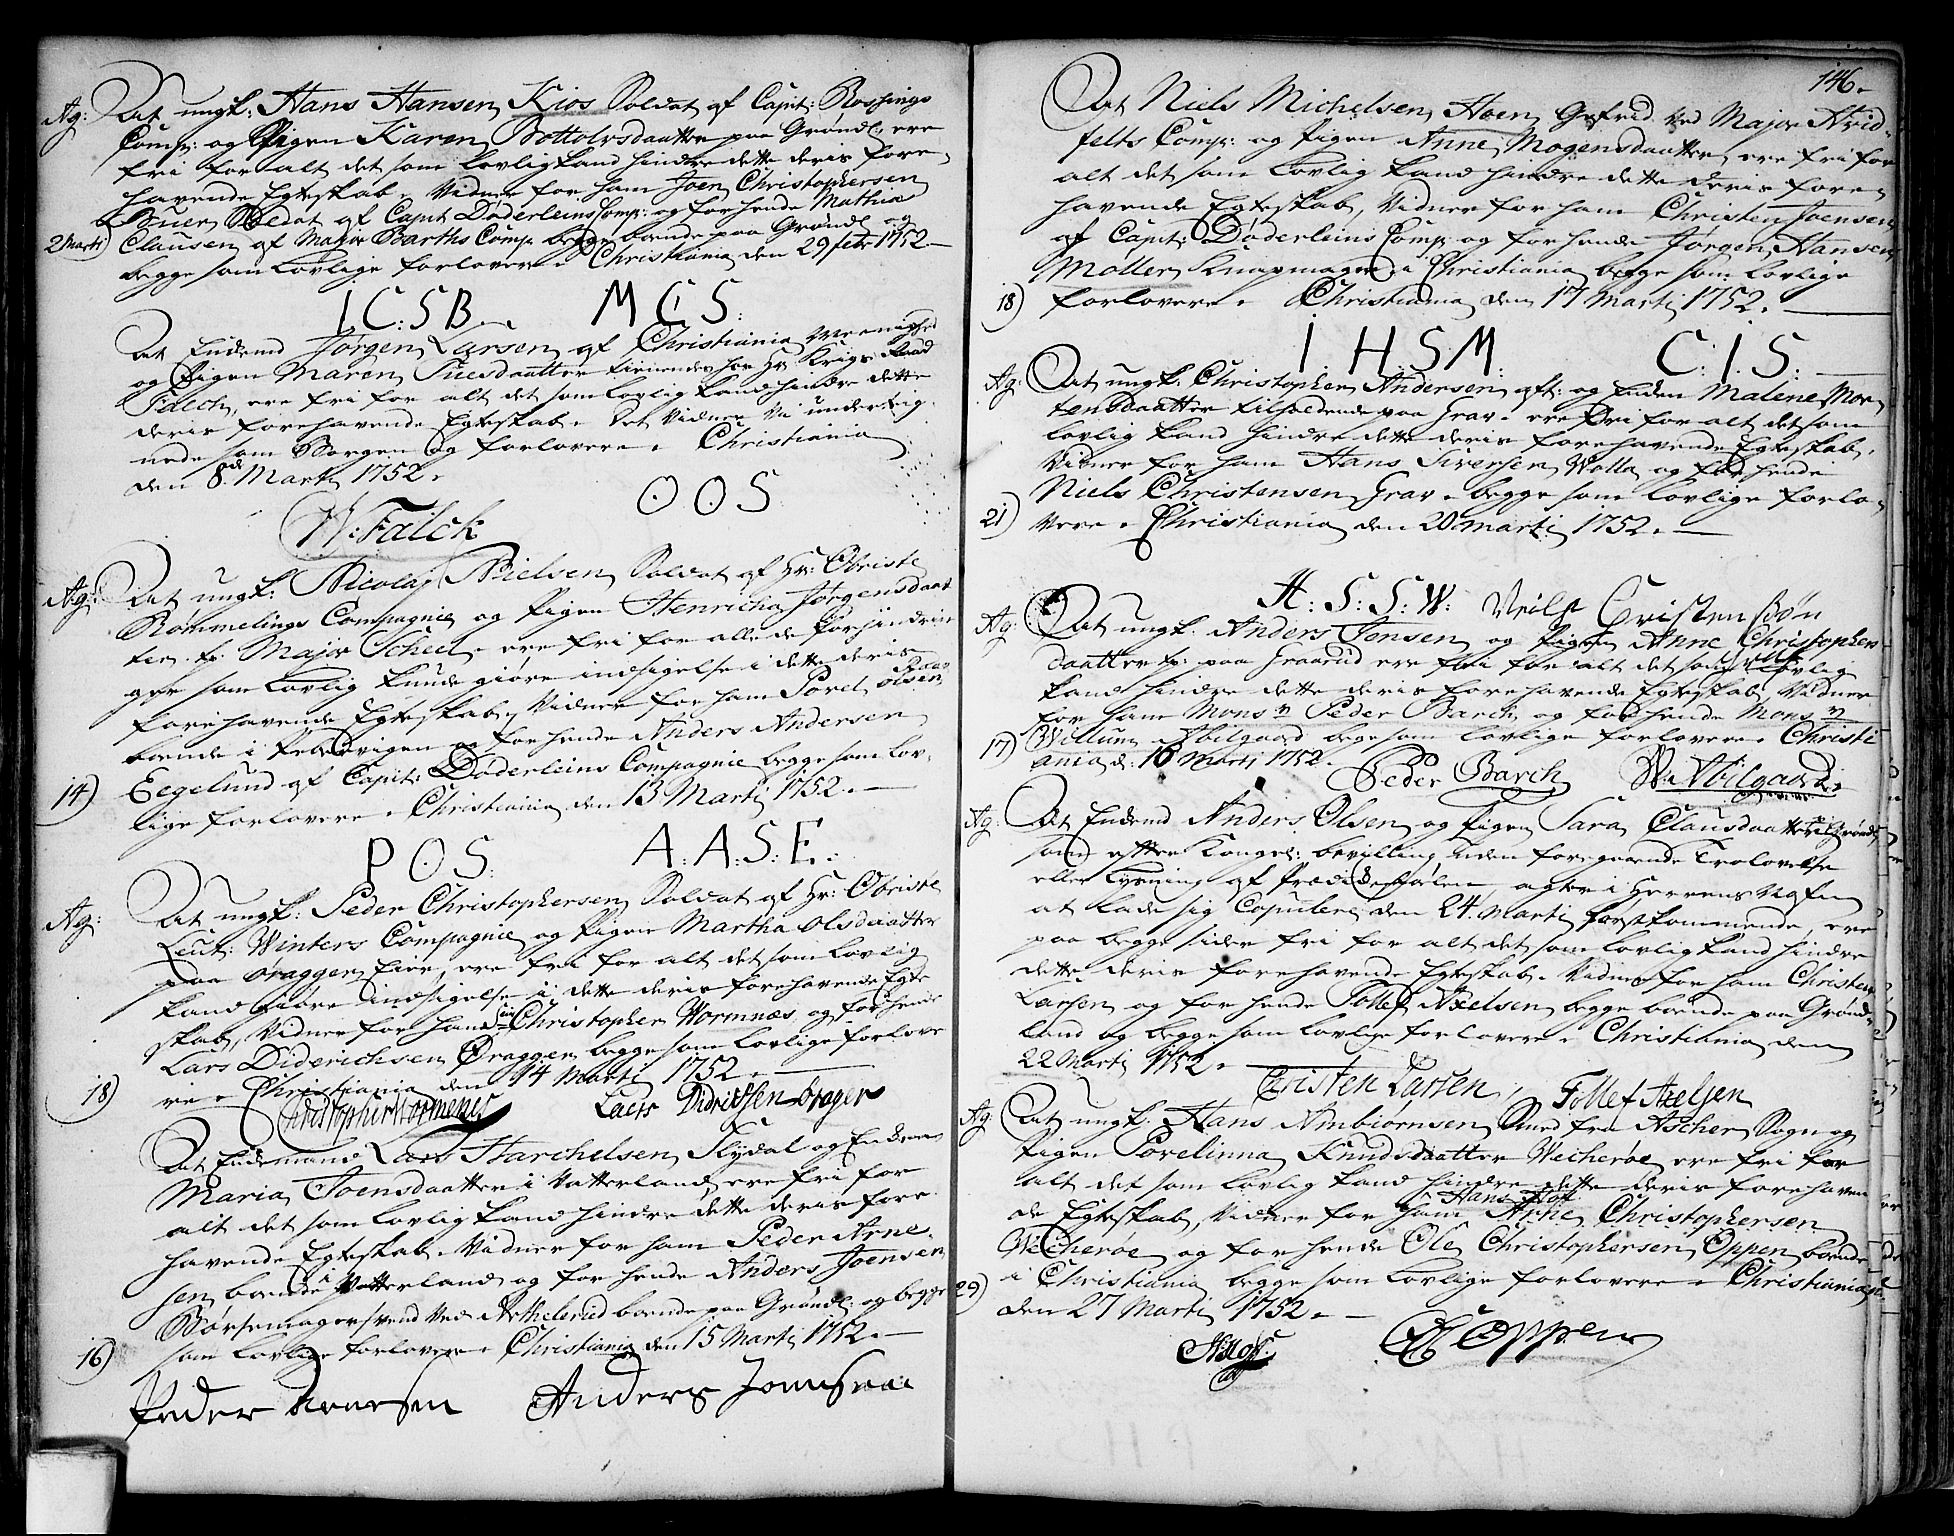 Ag: At ungk: Hans Hansen Kios Soldat af Capit: Rossings
Comp: og Pigen Karen Bottolvsdaatter paa Grøndl: ere
fri for alt det som lovlig kand hindre dette deris fore
havende Egteskab. Vidner for ham Joen Christophersen
Buer Soldat af Capit Døderleins Comp: og for hende Mathia
2 Marti) Clausen af Major Barths Comp. begge boende paa Grøndl og
begge som lovlige forlovere. Christiania den 29 febr 1752.
I C: S B. M C S:
At Enkemd Jørgen Larsen af Christiania Meenighed
og Pigen Maren Tuesdaatter tienende hos Hr Krigs Raad
Falch, ere fri for alt det som lovlig kand hindre dette
deris forehavende Egteskab. Det Vidner Vi underteig
nede som Borgen og forlovere. Christiania
den 8de Marti 1752.
W: Falck O O S
Ag: At ungk: Nicolay Nielsen Soldat af Hr: Obriste
Rømmelings Compagnie og Pigen Henricha Jørgensdaat
ter tr: Major Scheel. ere fri for alle de forhindrin
ger som lovlig kunde giøre indsigelse i dette deris
forehavende Egteskab, Vidner for ham Povel Olsen
boende i Pebervigen og for hende Anders Andersen
14) Eegelund af Capit: Døderleins Compagnie begge som lov,
lige forlovere. Christiania den 13 Marti 1752.
P O S: A: A: S: E.
Ag: At ungk: Peder Christophersen Soldat af Hr: Obriste
Leut: Winters Compagnie og Pigen Martha Olsdaatter
paa Øraggen Eier, ere fri for alt det som lovlig
kand giøre indsigelse i dette deris forehavende Egte
skab, Vidner for ham Christopher Wormnæs, og for hende
Lars Diderichsen Øraggen begge som lovlige forlove
18) re. Christiania den 14 Marti 1752.
Christopher Wormenes Laers Didrichsen øragers
At Enkemand Lars Starchelsen Kydal og Enken
Maria Joensdaatter i Vatterland, ere fri for
alt det som lovlig kand hindre dette deris fore
havende Egteskab. Vidner for ham Peder Arne
sen, boende i Vatterland og for hende Anders Joensen
Børsemagersvend Ved Aethelerud boende paa Grøndl: og begge
16) som lovlige forlovere. Christiania den 15 Marti 1752.
Peder Arensen Anders Jonnsen
146.
At Niels Michelsen Hoen Gefrid. Ved Major Hvid
felts Comp: og Pigen Anne Mogensdaatter, ere fri for
alt det som lovlig kand hindre dette deris fore
havende Egteskab, Vidner for ham Christen Joensen
af Capit: Døderleins Comp og for hende Jørgen Hansen
Møller Knapmager i Christiania begge som lovlige
18) forlovere. Christiania den 17 Marti 1752.
I H: S: M: C: I: S:
Ag: At ungk. Christopher Andersen gft: og Enken Malene Mor
tensdaatter tilholdende paa Grav. ere fri for alt det som
lovlig kand hindre dette deris forehavende Egteskab.
Vidner for ham Hans Siversen Wolla og for hende
Niels Christensen Grav. begge som lovlige forlo
21) vere. Christiania den 20 Marti 1752.
H: S: S: W: Neils Cristensøn
Ag: At ungk. Anders Jonsen og Pigen Anne Christophers
daatter tr: paa Graarud ere fri for alt det som lovlig
kand hindre dette deris forehavende Egteskab, Vidner
for ham Monsr Peder Barch og for hende Monsr
17) Willum Abilgaard begge som lovlige forlovere. Christi
ania d: 16 Marti 1752. Peder Barch Wm Abilgaard
Ag: At Enkemd Anders Olsen og Pigen Sara Clausdaatter i Grøndl
som efter Kongel: bevilling, uden foregaaende Trolovelse
eller Lysning af Prædikestolen, agter i Herrens Nafn
at lade sig Copulere den 24 Marti førstkommende, ere
paa begge sider fri for alt det som lovlig kand hindre
dette deris forehavende Egteskab. Vidner for ham Christen
Larsen og for hende Tollef Axelsen begge boende paa Grønd
land og begge som lovlige forlovere. Christiania den
22 Marti 1752. Christen Larsen, Tollef Axelsen
Ag: At ungk. Hans Ambiørnsen Smed fra Ascher Sogn og
Pigen Povelinna Knudsdaatter Wecherøe, ere fri for
alt det som lovlig kand hindre dette deris forehaven
de Egteskab, Vidner for ham Hans Hof Arne Christophersen
Wecherøe og for hende Ole Christophersen Oppen boende
29) i Christiania begge som lovlige forlovere. Christiania
den 27 Marti 1752.
HHof OC Oppen